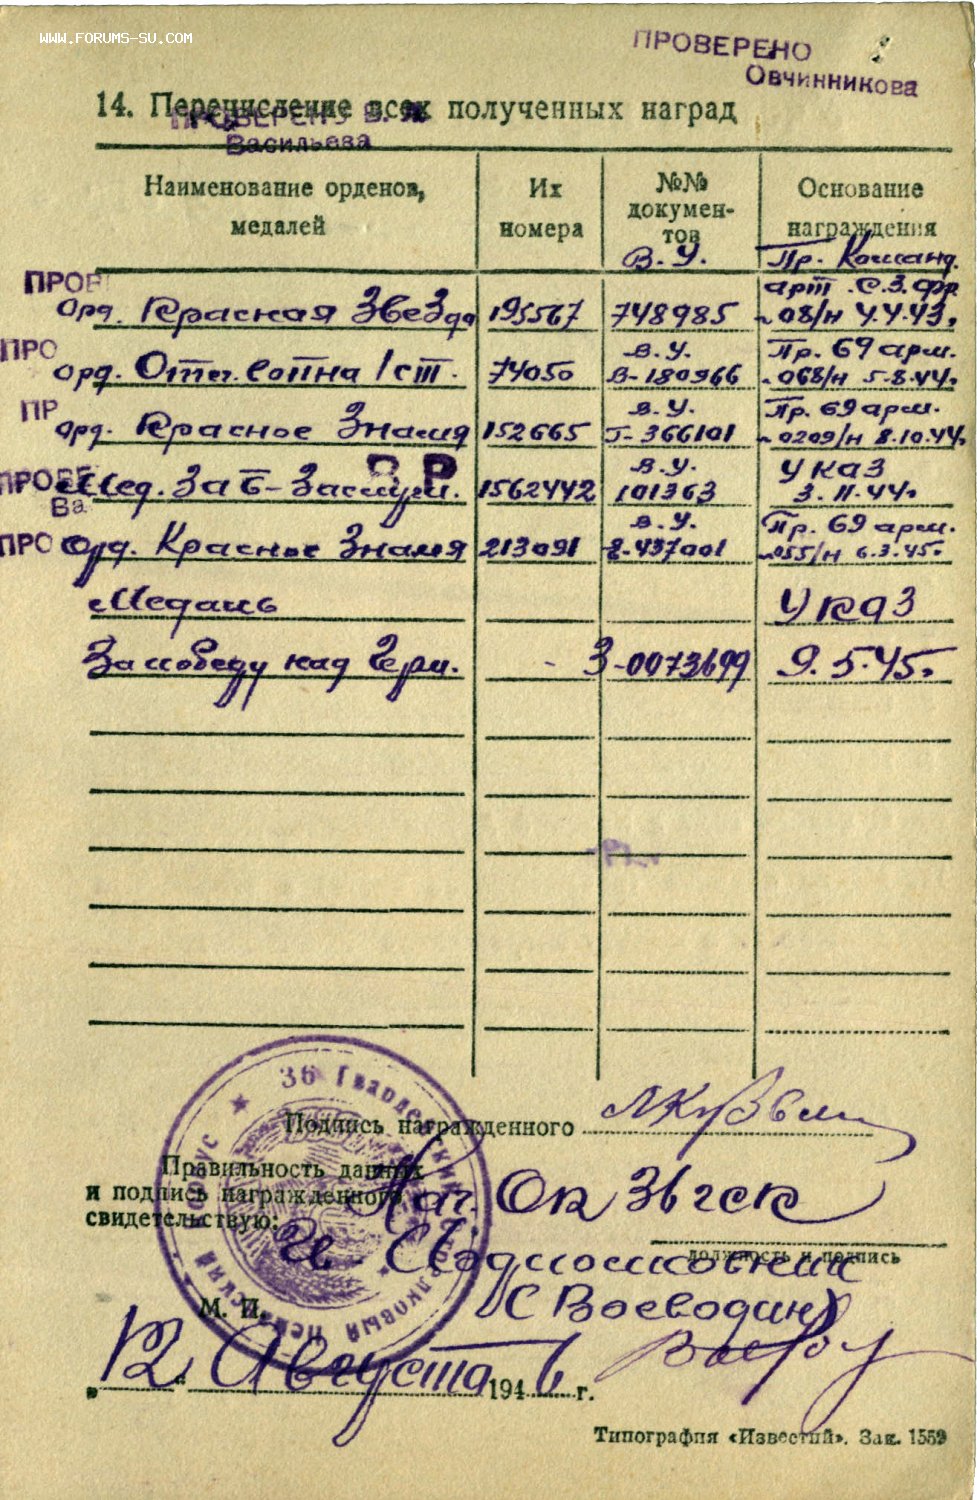 WWW.FORUMS-SU.COM
ПРОВЕРЕНО
Овчинникова
14. Перечисление всех полученных наград
ПРОВЕРЕНО
Васильева
Наименование орденов, медалей
Их номера
№№ документов
Основание награждения
В.У. Пр. Команд.
ПРОВ арт. С.З. Фр
Орд. Красная Звезда 195567 748985 08/н 4.4.43г
ПРО В.У. Пр. 69 арм.
Орд. Отеч. война 1 ст. 74050 В-180966 068/н 5.8.44г
ПР В.У. Пр. 69 арм.
Орд. Красное Знамя 152665 Г-366101 0209/н 8.10.44г
ПРОВЕ В.У. Указ
Мед. За Б-Заслуги. 1562442 101363 3.11.44г
Ва В.У. Пр. 69 арм.
ПРО Орд. Красное Знамя 213091 437001 055/н 6.3.45г
Медаль Указ
За победу над Герм. - З-0073699 9.5.45г
36 Гвардейский Стрелковый Неманский корпус
Подпись награжденного
Правильность данных
и подпись награжденного
свидетельствую:
Нач. ОК 36 гск
должность и подпись
Гв. Подполковник
М. П.
(С Воеводин)
„12" Августа 1946 г.
Типография «Известий». Зак. 1559